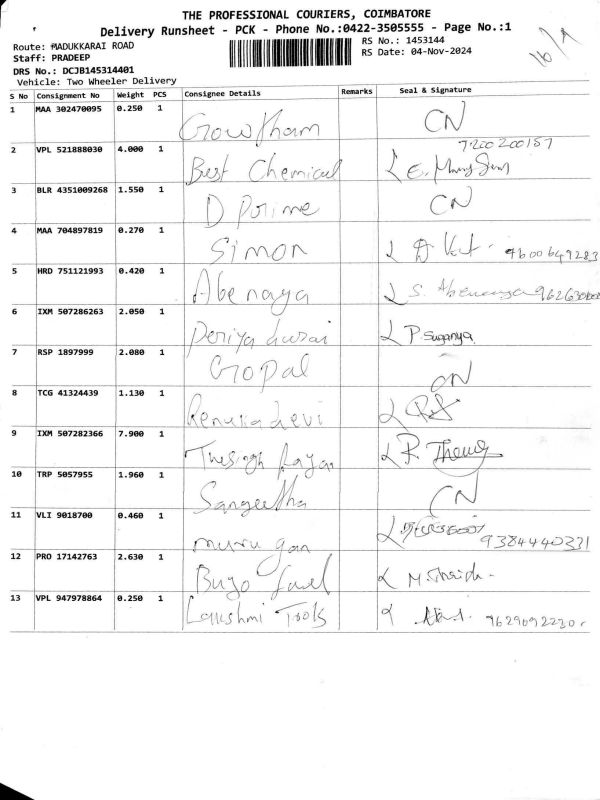 THE PROFESSIONAL COURIERS, COIMBATORE
Delivery Runsheet - PCK - Phone No.:0422-3505555 - Page No.:1
Route: MADUKKARAI ROAD
RS No.: 1453144
Staff: PRADEEP
RS Date: 04-Nov-2024
DRS No.: DCJB145314401
Vehicle: Two Wheeler Delivery
S No Consignment No Weight PCS Consignee Details Remarks Seal & Signature
1 MAA 302470095 0.250 1 Gowtham CN
7200200157
2 VPL 521888030 4.000 1 Best Chemical
3 BLR 4351009268 1.550 1 D Prime CN
4 MAA 704897819 0.270 1 Simon 9600649283
5 HRD 751121993 0.420 1 Abenaya S.
6 IXM 507286263 2.050 1 Periya durai P. Suganya
7 RSP 1897999 2.080 1 Gopal CN
8 TCG 41324439 1.130 1 Renugadevi
9 IXM 507282366 7.900 1
10 TRP 5057955 1.960 1 Sangeetha CN
11 VLI 9018700 0.460 1 murugan 9384440331
12 PRO 17142763 2.630 1
13 VPL 947978864 0.250 1 Lakshmi Tools 9629092220